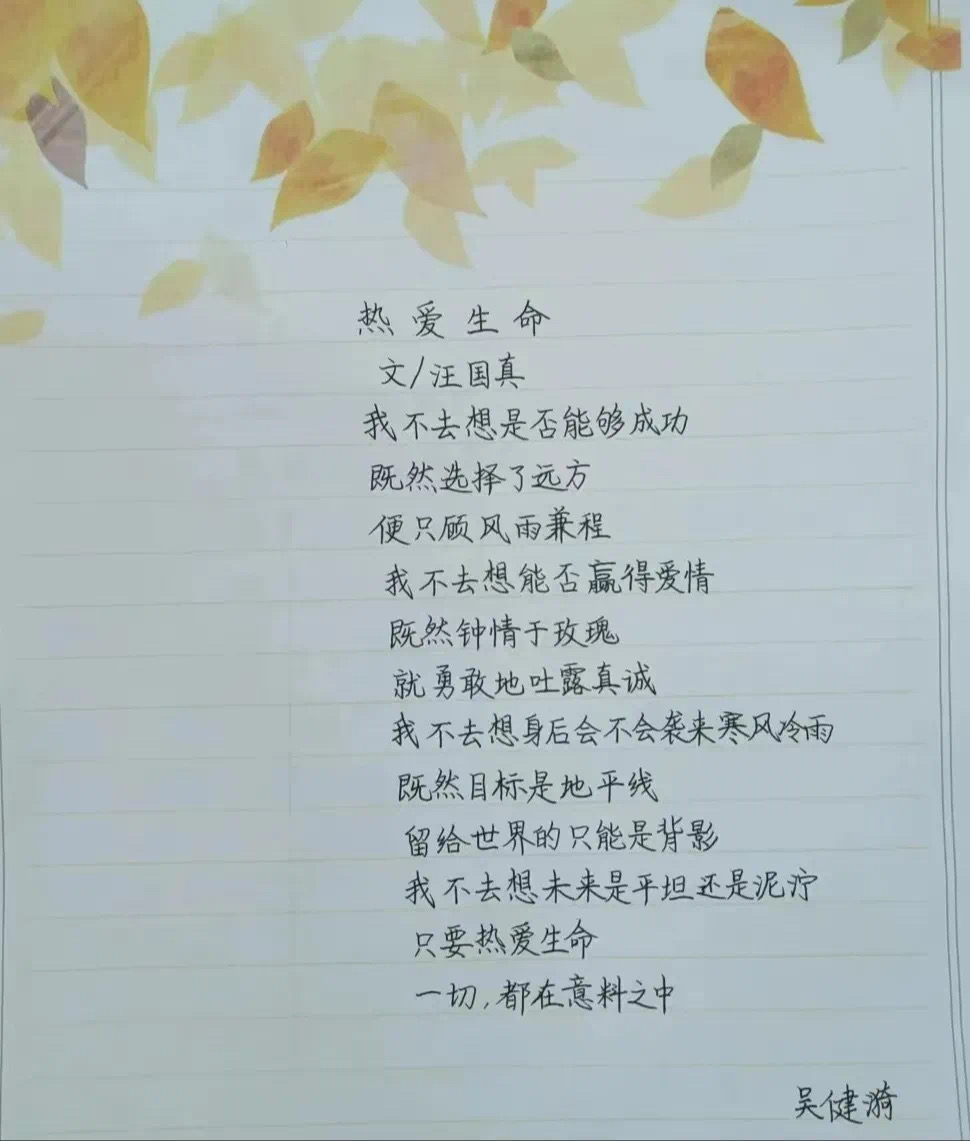 热爱生命
文/汪国真
我不去想是否能够成功
既然选择了远方
便只顾风雨兼程
我不去想能否赢得爱情
既然钟情于玫瑰
就勇敢地吐露真诚
我不去想身后会不会袭来寒风冷雨
既然目标是地平线
留给世界的只能是背影
我不去想未来是平坦还是泥泞
只要热爱生命
一切,都在意料之中
吴健漪